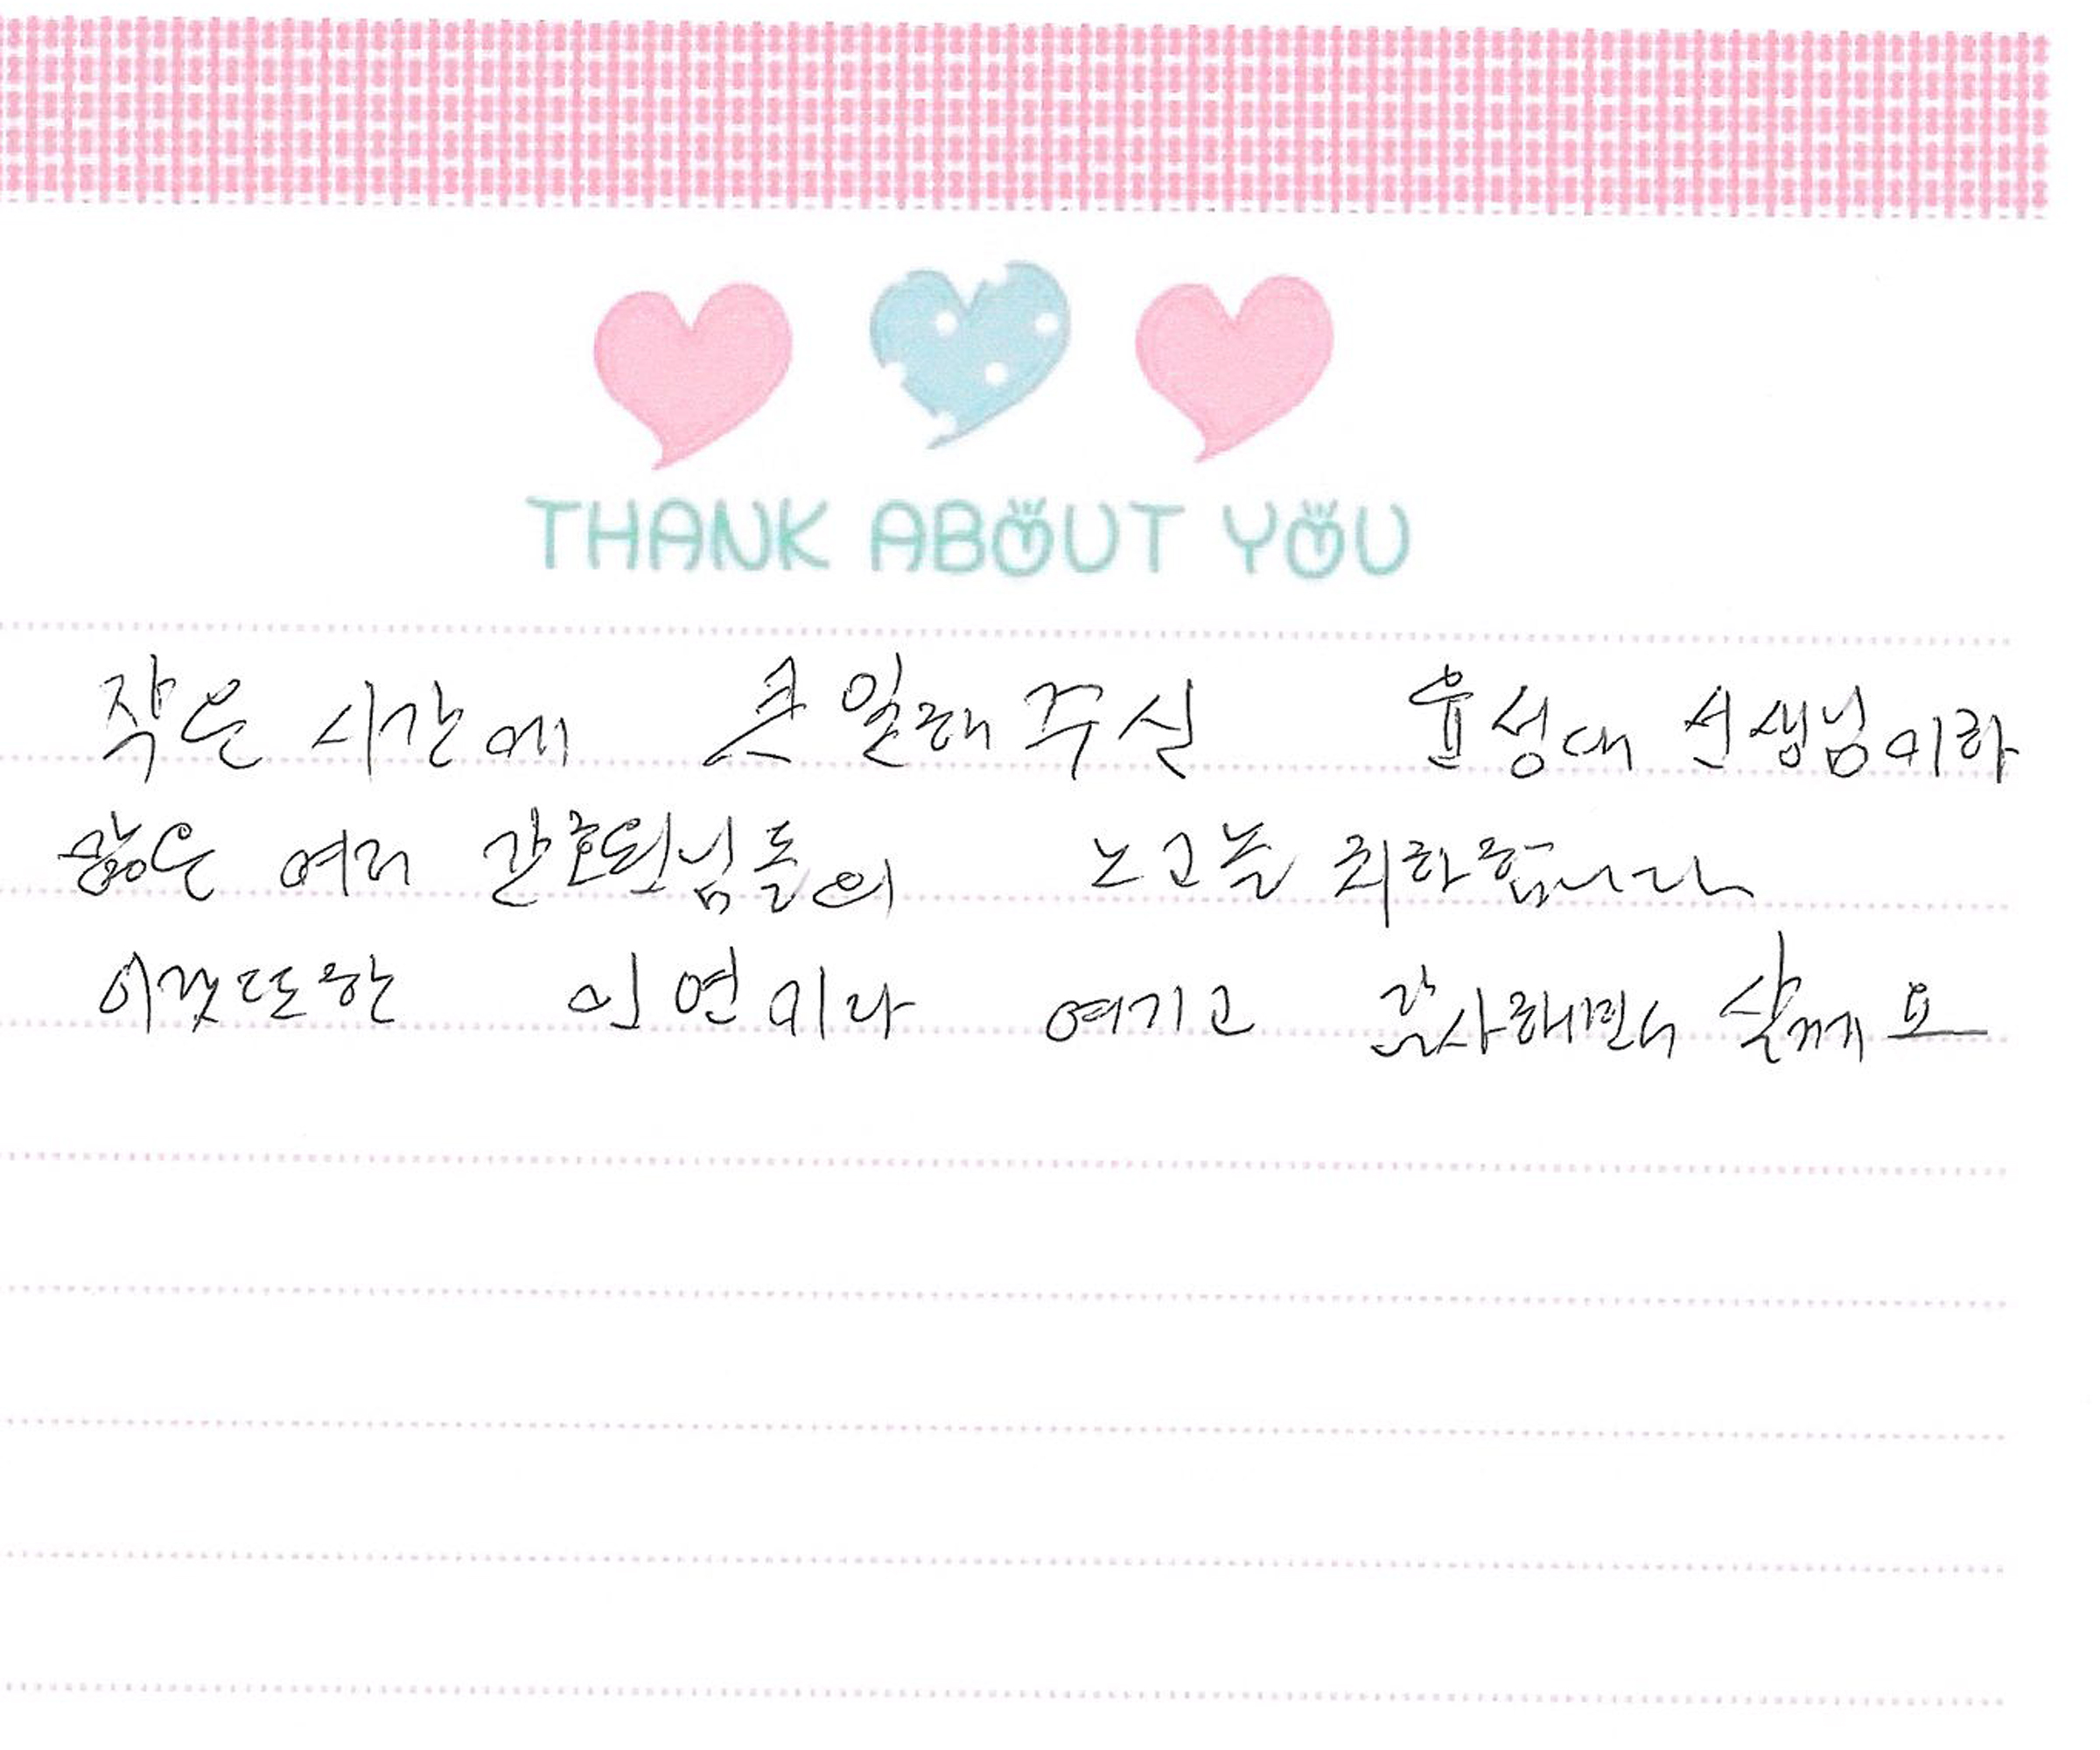 THANK ABOUT YOU
작은 시간에 큰일해 주신 윤성대 선생님이하
많은 여러 간호원님들의 노고를 치하합니다
이것또한 인연이라 여기고 감사해면서 살께요